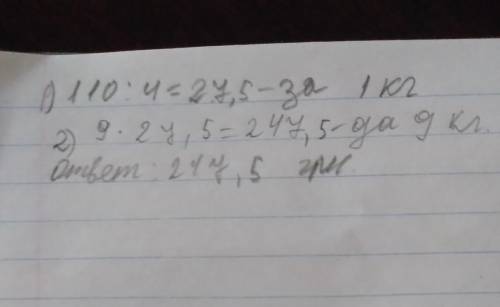 1) 110 : 4 = 27,5 - за 1 кг
2) 9 · 27,5 = 247,5 - за 9 кг.
Ответ: 247,5 грн.